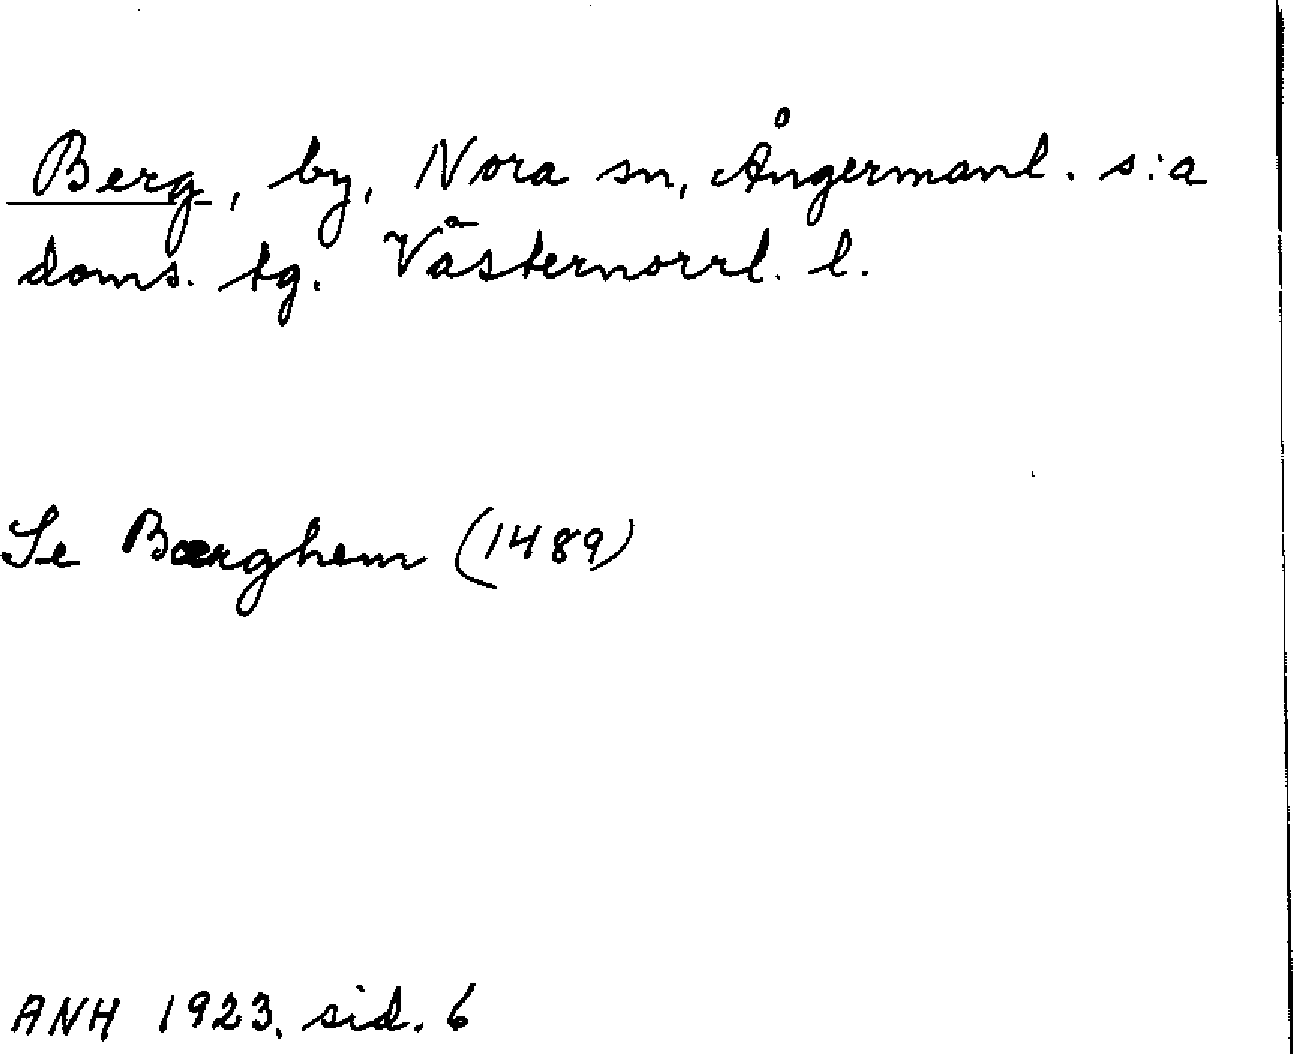 Berg, by, Nora sn, Ångermanl. s:a
doms. tg. Västernorrl. l.
Se Bærghem (1489)
ANH 1923, sid. 6